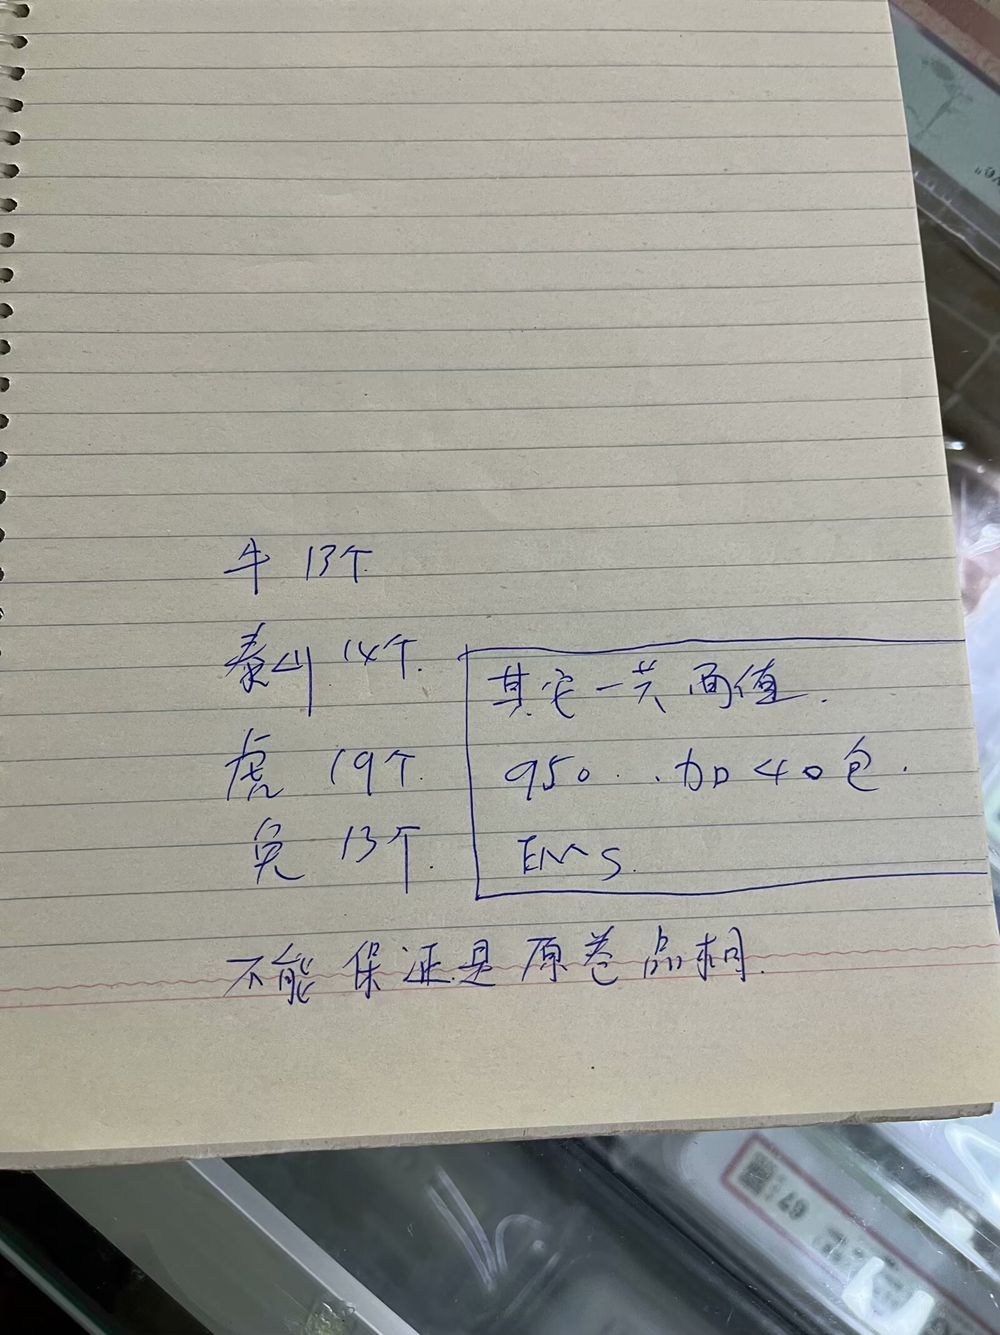 牛 13个
泰山 14个.
虎 19个.
兔 13个.
其它一共面值.
950..加40包.
EMS.
不能保证是原卷品相.